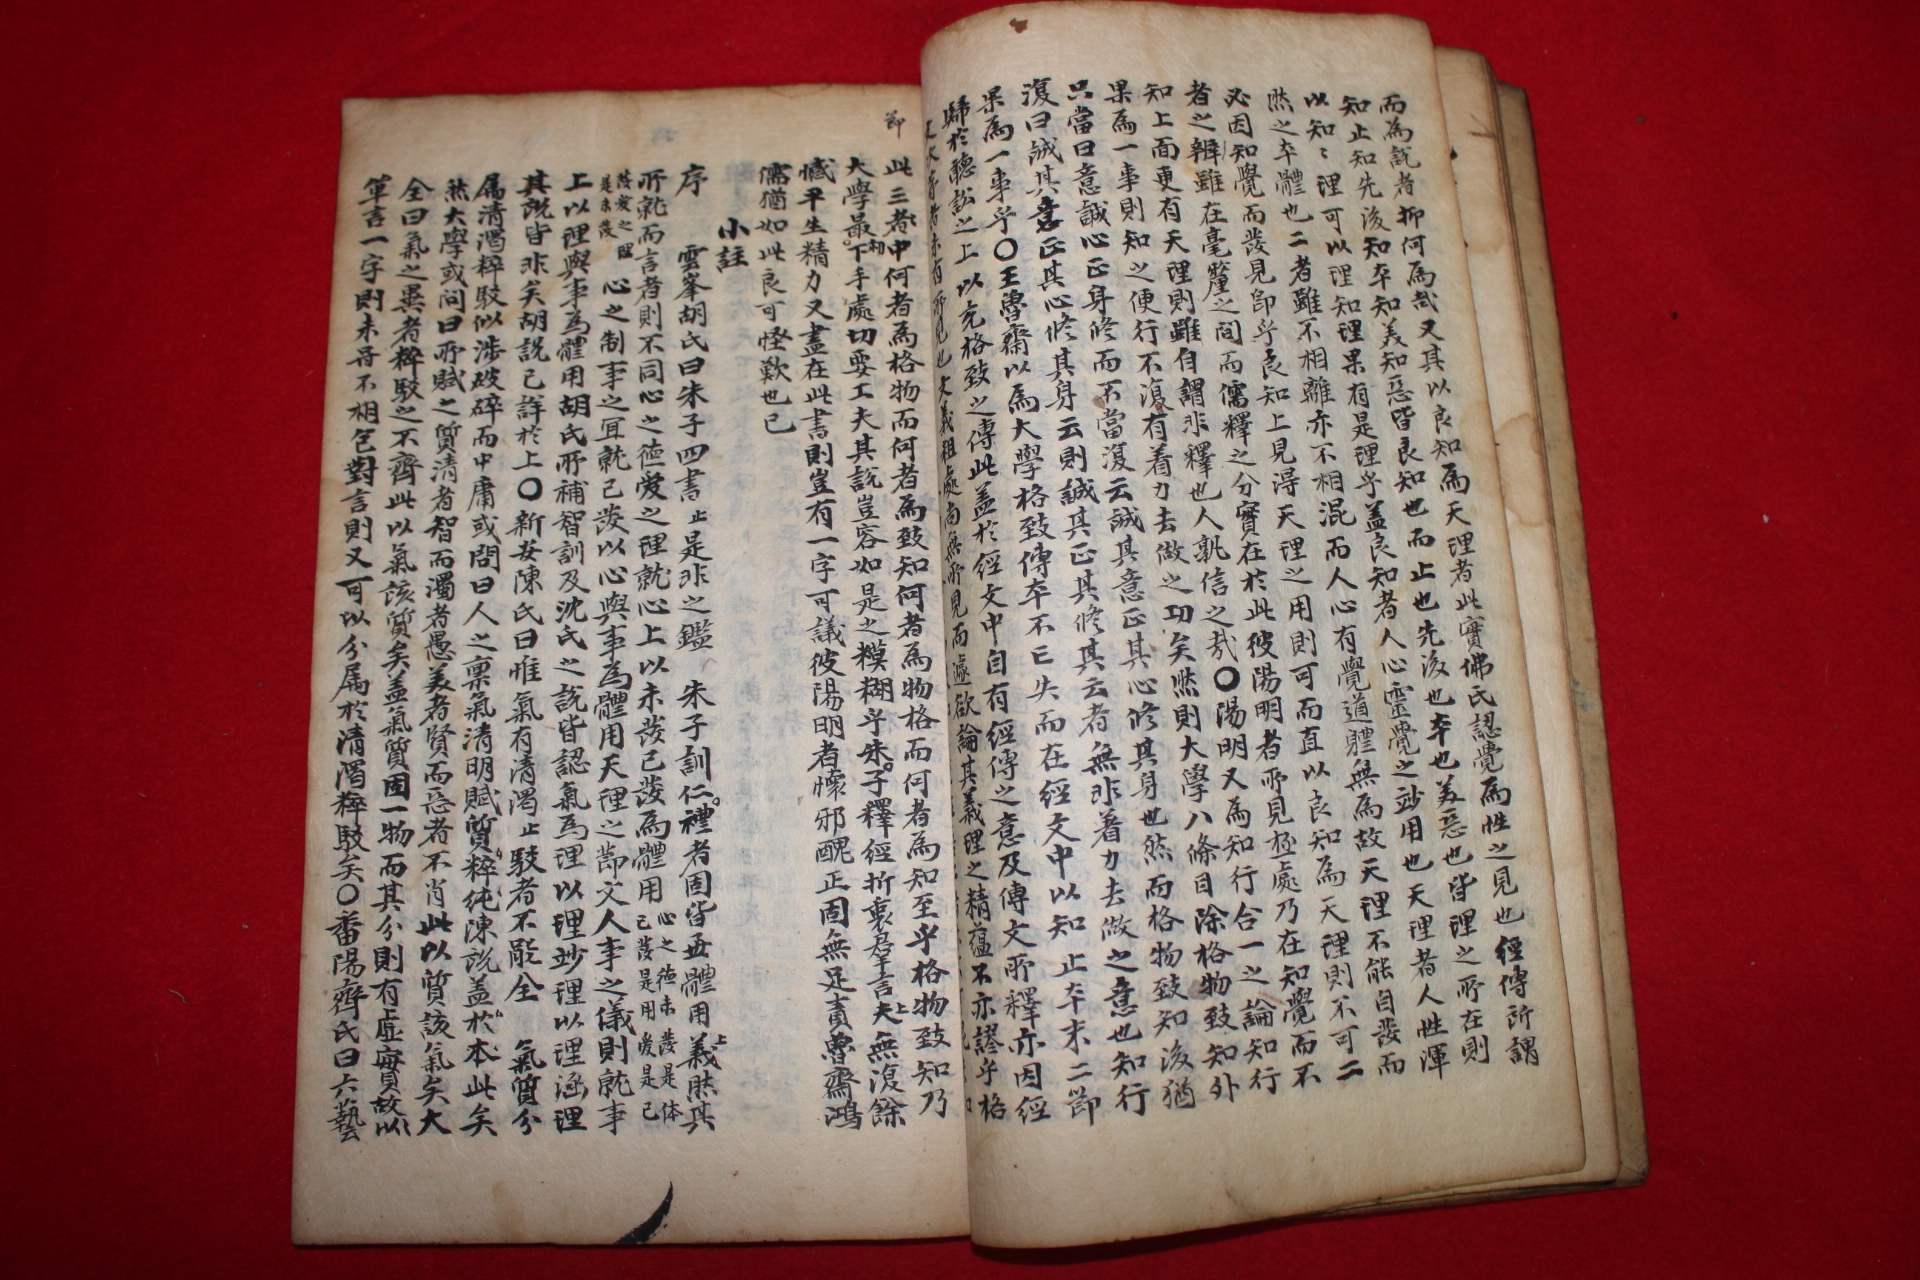 而為說者抑何為哉又其以良知為天理者此實佛氏認覺為性之見也經傳所謂
知止知先後知本知美知惡皆良知也而止也先後也本也美惡也皆理之所在則
以知知理可以理知理果有是理乎盖良知者人心靈覺之妙用也天理者人性渾
然之本體也二者雖不相離亦不相混而人心有覺道軆無為故天理不能自發而
必因知覺而發見卽乎良知上見得天理之用則可而直以良知為天理則不可二
者之辨雖在毫釐之间而儒釋之分實在於此彼陽明者所見極處乃在知覺而不
知上面更有天理則雖自謂非釋也人孰信之哉○陽明又為知行合一之論知行
果為一事則知之便行不復有着力去做之功矣然則大學八條目除格物致知外
只當曰意誠心正身修而不當復云誠其意正其心修其身也然而格物致知後猶
復曰誠其意正其心修其身云則誠其正其修其云者無非着力去做之意也知行
果為一事乎○王魯齋以為大學格致傳本不亡失而在經文中以知止本末二節
歸於聽訟之上以充格致之傳此盖於經文中自有經傳之意及傳文所釋亦因經
文義粗處尙無所見而遽欲論其義理之精蘊不亦謬乎格
節
此三者中何者為格物而何者為致知何者為物格而何者為知至乎格物致知乃
大學最初下手處切要工夫其說豈容如是之糢糊乎朱子釋經折衷羣言上夫無復餘
憾平生精力又盡在此書則豈有一字可議彼陽明者懷邪醜正固無足責魯齋鴻
儒猶如此良可怪歎也已
小註
序 雲峯胡氏曰朱子四書止是非之鑑 朱子訓仁禮者固皆並軆用上義然其
所就而言者則不同心之德愛之理就心上以未發已發為軆用心之德未發是体已發是用愛是已
發愛之理是未發 心之制事之宜就已發以心與事為軆用天理之節文人事之儀則就事
上以理與事為軆用胡氏所補智訓及沈氏之說皆認氣為理以理妙理以理涵理
其說皆非矣胡說已詳於上○新安陳氏曰惟氣有清濁止駁者不能全 氣質分
属清濁粹駁似涉破碎而中庸或問曰人之禀氣清明賦質粹純陳說盖於本此矣
然大學或问曰所賦之質清者智而濁者愚美者賢而惡者不肖此以質該氣矣大
全曰氣之異者粹駁之不齊此以氣該質矣盖氣質固一物而其分則有虛實故以
單言一字則未甞不相包對言則又可以分属於清濁粹駁矣○番陽齊氏曰六藝